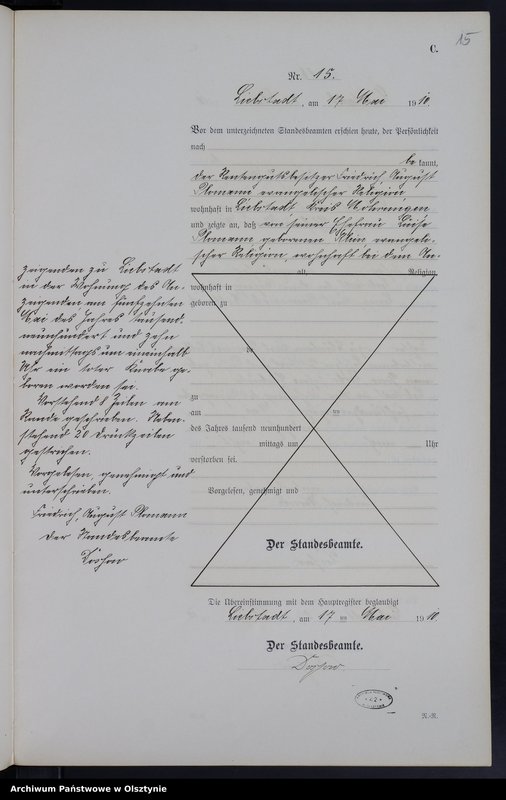 15
C.
Nr. 15.
Liebstadt, am 17 Mai 1910.
Vor dem unterzeichneten Standesbeamten erschien heute, der Persönlichkeit
nach
be kannt,
der Rentengutsbesitzer Friedrich August
Plomann, evangelischer Religion
wohnhaft in Liebstadt, Kreis Mohrungen
und zeigte an, daß von seiner Ehefrau Luise
Plomann geborenen evangeli-
scher Religion, wohnhaft bei dem An-
alt, Religion,
wohnhaft in
geboren zu
zu
am ten
des Jahres tausend neunhundert
mittags um Uhr
verstorben sei.
Vorgelesen, genehmigt und
Der Standesbeamte.
zeigenden zu Liebstadt
in der Wohnung des An-
zeigenden am fünfzehnten
Mai des Jahres tausend
neunhundert und zehn
nachmittags um einhalb
Uhr ein toter Knabe ge-
boren worden sei.
Vorstehend 8 Zeilen am
Rande geschrieben. Neben-
stehend 20 Druckzeilen
gestrichen.
Vorgelesen, genehmigt und
unterschrieben.
Friedrich, August Plomann
Der Standesbeamte
Die Übereinstimmung mit dem Hauptregister beglaubigt
Liebstadt, am 17 ten Mai 1910
Der Standesbeamte.
N.-R.
Archiwum Państwowe w Olsztynie